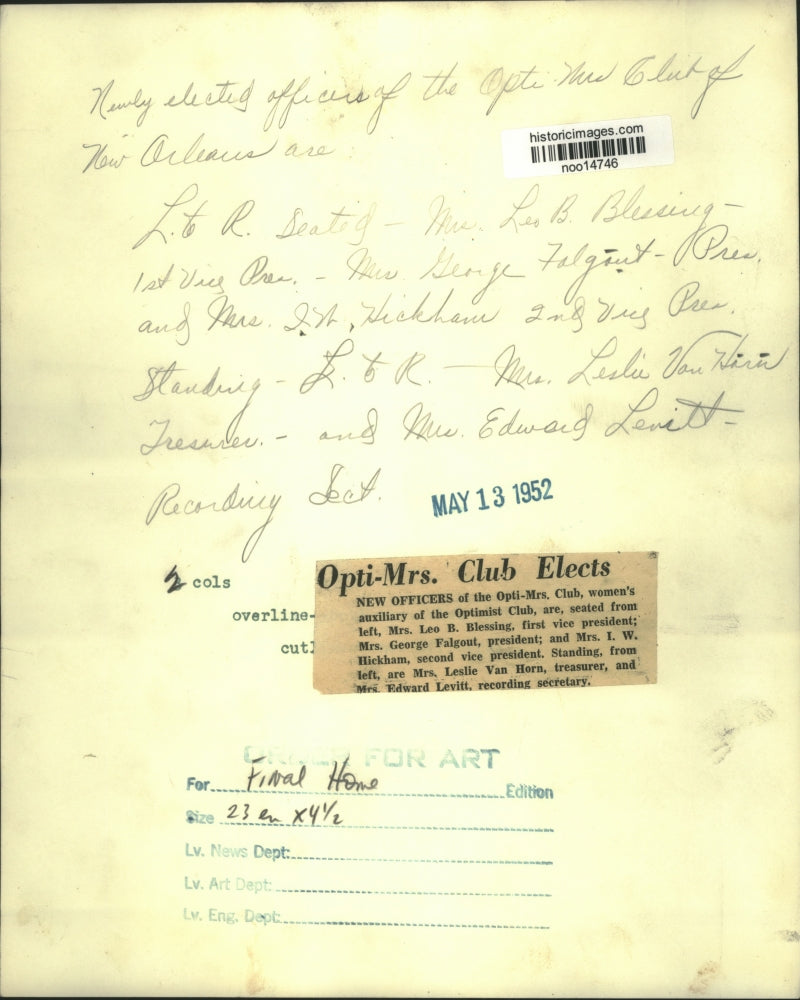 Newly elected officers of the Opti Mrs Club of
New Orleans are
historicimages.com
noo14746
L. to R. Seated - Mrs. Leo B. Blessing -
1st Vice Pres. - Mrs. George Falgout - Pres.
and Mrs. I.W. Hickham 2nd Vice Pres.
Standing - L. to R. - Mrs. Leslie Van Horn
Tresurer. - and Mrs. Edward Levitt -
Recording Sect.
MAY 13 1952
2 cols
overline-
cutl
Opti-Mrs. Club Elects
NEW OFFICERS of the Opti-Mrs. Club, women's
auxiliary of the Optimist Club, are, seated from
left, Mrs. Leo B. Blessing, first vice president;
Mrs. George Falgout, president; and Mrs. I. W.
Hickham, second vice president. Standing, from
left, are Mrs. Leslie Van Horn, treasurer, and
Mrs. Edward Levitt, recording secretary.
ORDER FOR ART
For Final Home Edition
Size 23 em x 4 1/2
Lv. News Dept:
Lv. Art Dept:
Lv. Eng. Dept: